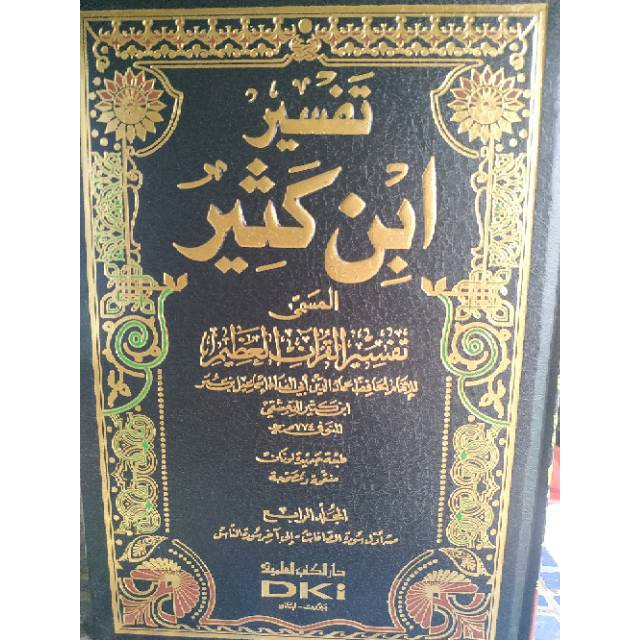 تَفسِير
ابْنِ كَثِيرٌ
المسمى
تفسير القرآن العظيم
للإمام الحافظ عماد الدين أبي الفداء إسماعيل بن عمر
ابن كثير الدمشقي
المتوفى ٧٧٤ هـ
طبعة جديدة لونان
منقحة ومصححة
المجلد الرابع
من أول سورة الصافات - إلى آخر سورة الناس
دار الكتب العلمية
DKi
بيروت - لبنان